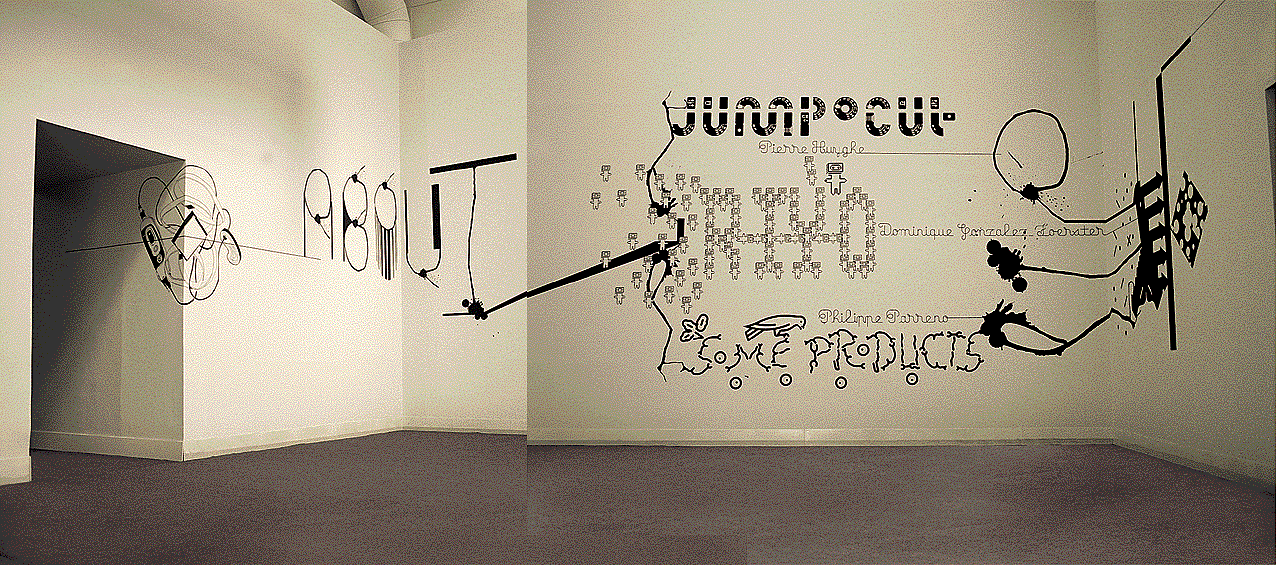 ABOUT
JUMP CUT
Pierre Huyghe
RIYO
Dominique Gonzalez-Foerster
Philippe Parreno
SOME PRODUCTS